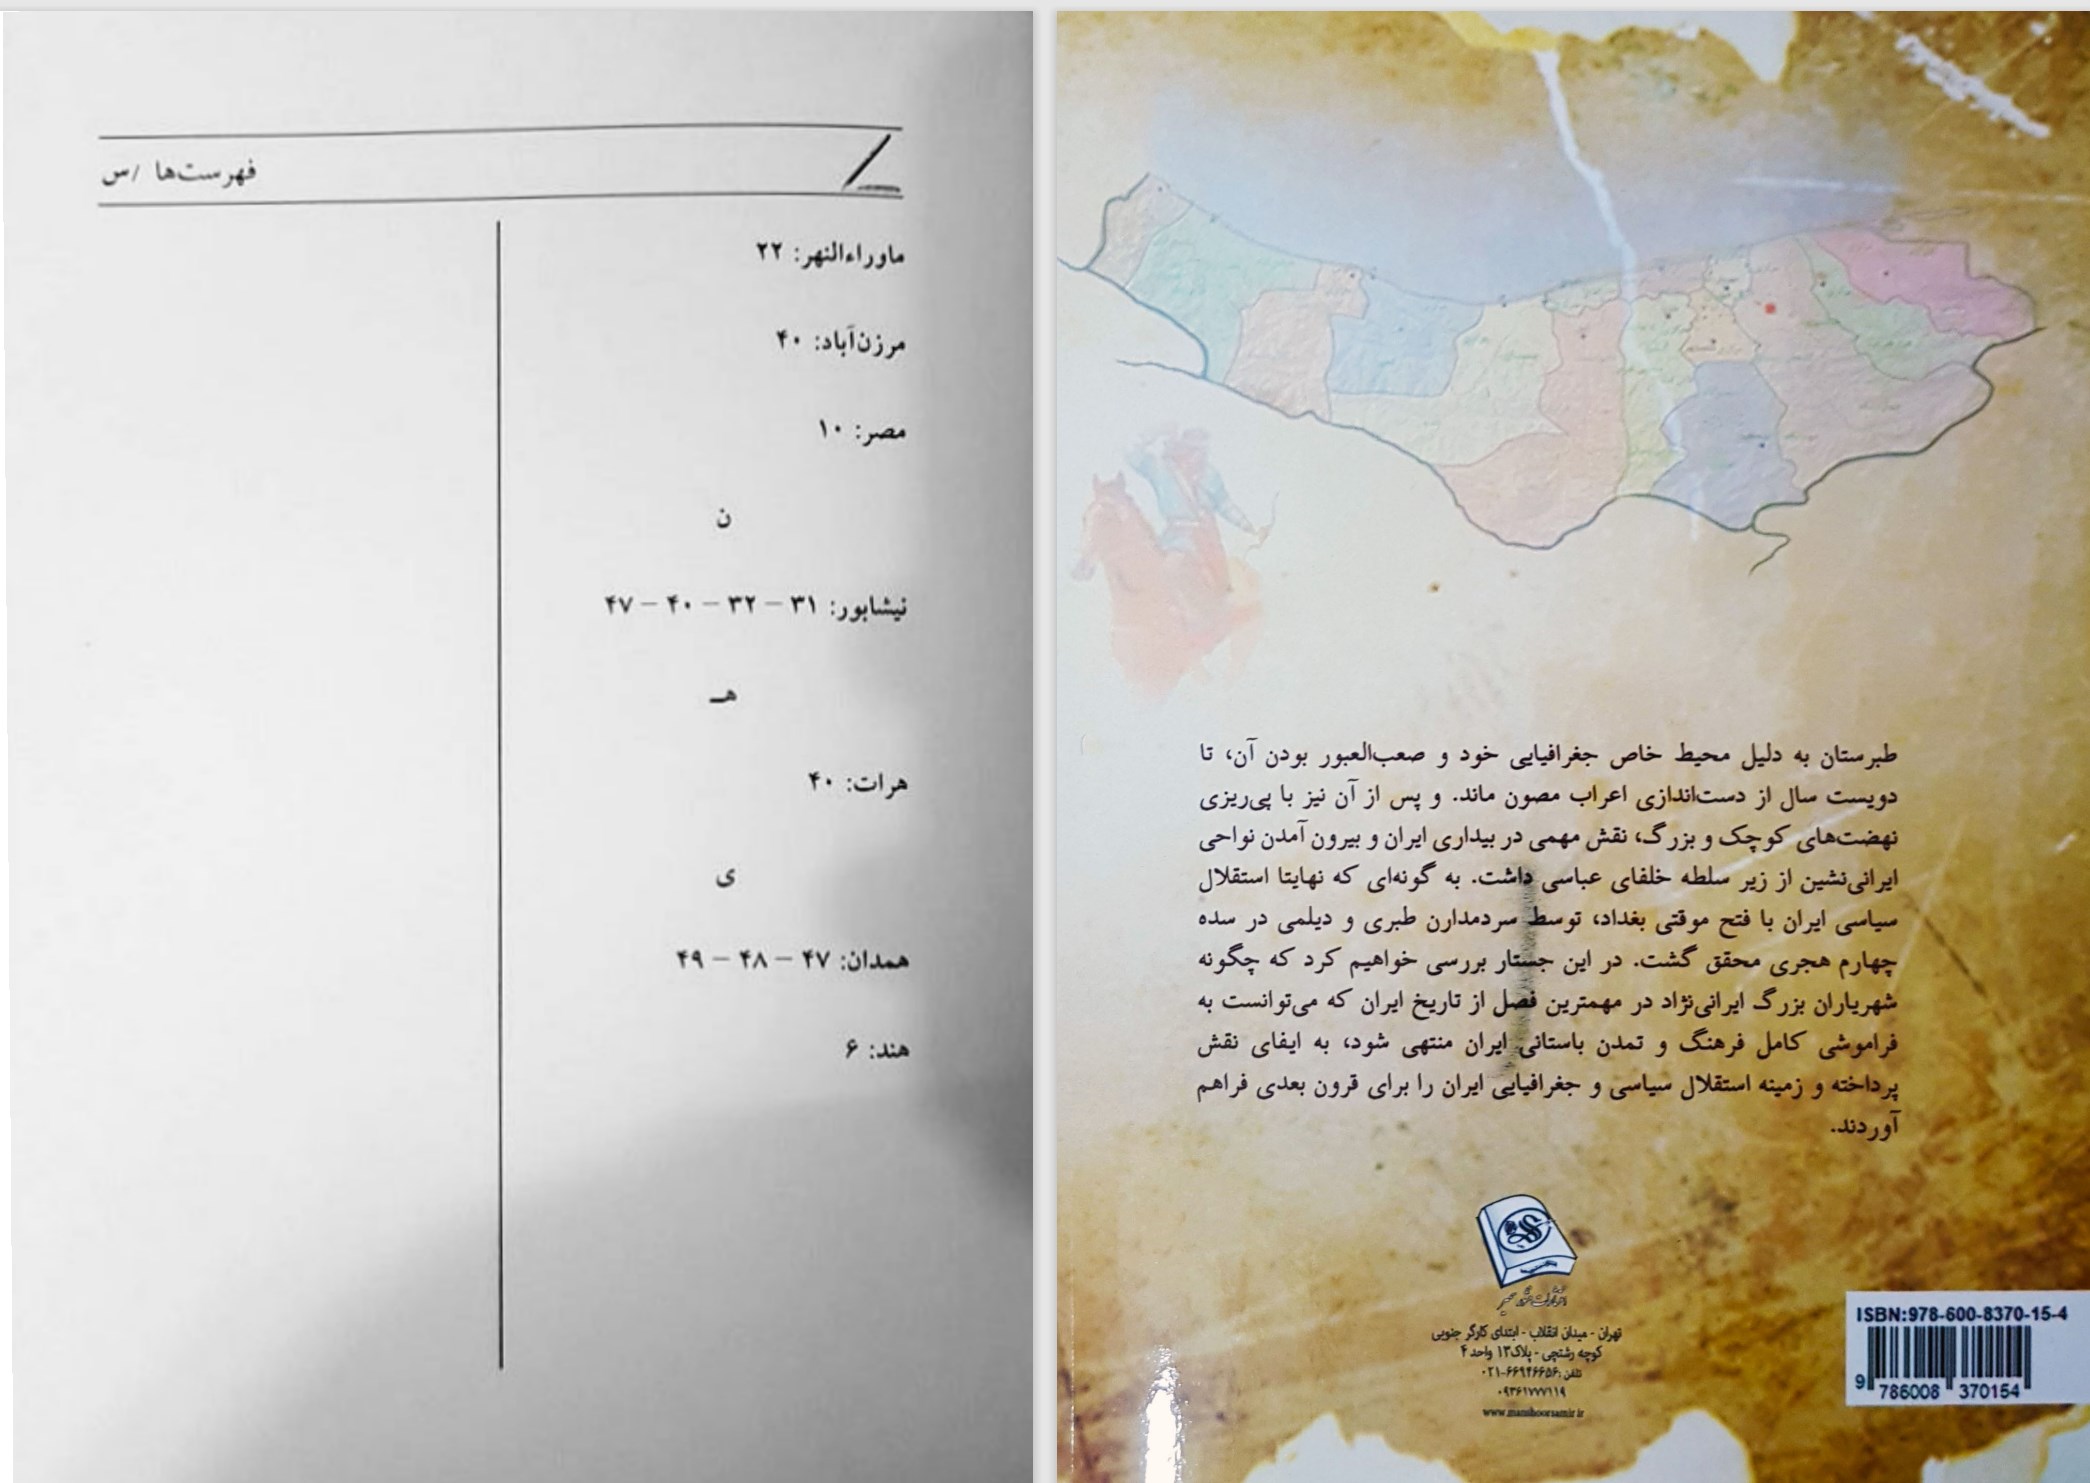 فهرست‌ها /س
ماوراءالنهر: ۲۲
مرزن‌آباد: ۴۰
مصر: ۱۰
ن
نیشابور: ۳۱ – ۳۲ – ۴۰ – ۴۷
هـ
هرات: ۴۰
ی
همدان: ۴۷ – ۴۸ – ۴۹
هند: ۶
طبرستان به دلیل محیط خاص جغرافیایی خود و صعب‌العبور بودن آن، تا
دویست سال از دست‌اندازی اعراب مصون ماند. و پس از آن نیز با پی‌ریزی
نهضت‌های کوچک و بزرگ، نقش مهمی در بیداری ایران و بیرون آمدن نواحی
ایرانی‌نشین از زیر سلطه خلفای عباسی داشت. به گونه‌ای که نهایتا استقلال
سیاسی ایران با فتح موقتی بغداد، توسط سردمدارن طبری و دیلمی در سده
چهارم هجری محقق گشت. در این جستار بررسی خواهیم کرد که چگونه
شهریاران بزرگ ایرانی‌نژاد در مهمترین فصل از تاریخ ایران که می‌توانست به
فراموشی کامل فرهنگ و تمدن باستانی ایران منتهی شود، به ایفای نقش
پرداخته و زمینه استقلال سیاسی و جغرافیایی ایران را برای قرون بعدی فراهم
آوردند.
تهران - میدان انقلاب - ابتدای کارگر جنوبی
کوچه رشتچی - پلاک۱۳ واحد ۴
تلفن :۶۶۹۴۶۶۵۶-۰۲۱
۰۹۳۶۱۷۷۷۱۱۹
www.manshoorsamir.ir
ISBN:978-600-8370-15-4
9 786008 370154